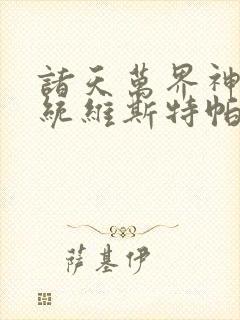 諸天萬界神
統維斯特帕
萨基伊